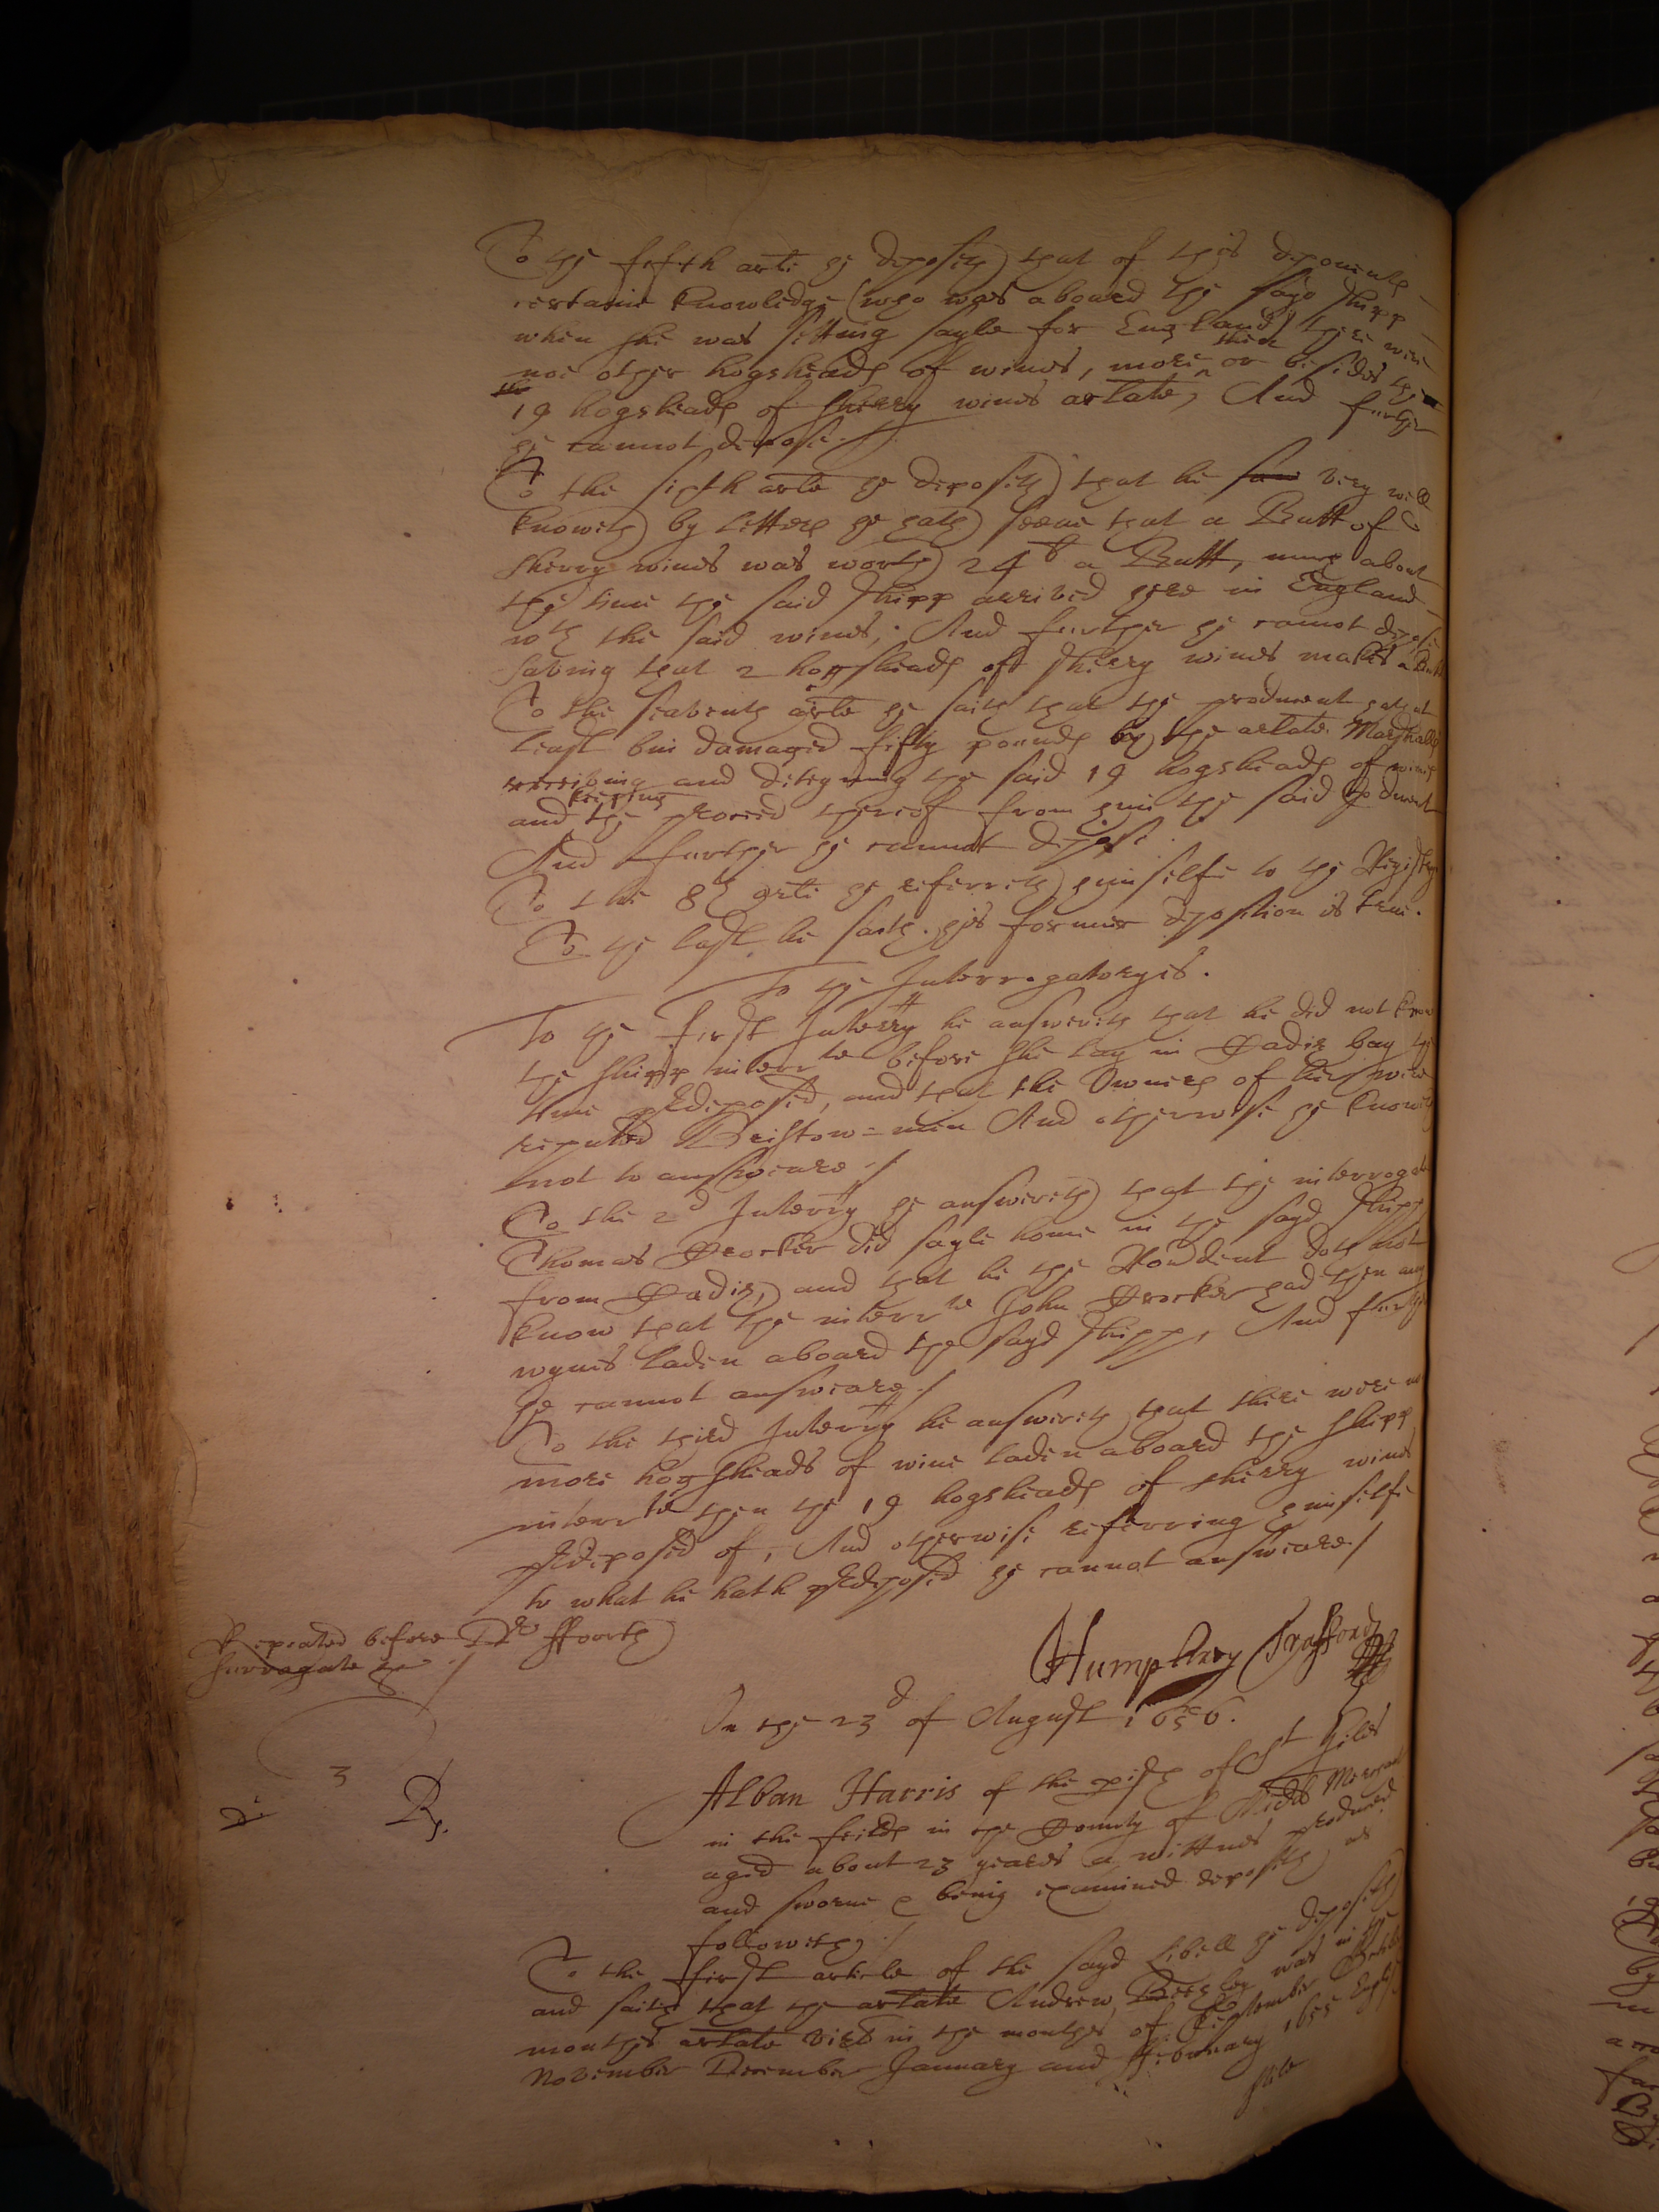 To the fifth arte he deposeth that of this deponents
certaine knowledge (who was aboard the sayd shipp
when she was setting sayle for England) there were
noe other hogsheads of wines, more then or besides the
the 19 hogsheads of sherry wines arlate, And further
he cannot depose./
To the sixth arte he deposeth that he saw very well
knoweth by letters he hath seene that a Butt of
sherry wines was worth 24 li a Butt, much about
the time the said shipp arrived here in England
wth the said wines, And further he cannot depose
saving that 2 hogsheads of sherry wines makes a Butt
To the seaventh arte he saith that the producent hath at
least bin damaged fifty pounds by the arlate Marshalls
receiving and deteyning the said 19 hogsheads of wines
and keeping the proceed thereof from him the said producent
And further he cannot depose
To the 8th arte he referreth himselfe to the Registry
To the last he saith his former deposition is true.
To the Interrogatoryes.
To the first Interry he answereth that he did not know
the shipp interrte before she lay in Cadiz bay the
time predeposed, and that the Owners of her were
reputed Bristow-men And otherwise he knoweth
not to answeare./
To the 2d Interry he answereth that the interrogate
Thomas Crocker did sayle home in the sayd shipp
from Cadiz, and that he the Rondent doth not
know that the interrte John Crocker had then any
wynes laden aboard the sayd shipp, And further
he cannot answeare./
To the third Interry he answereth that there were no
more hogsheads of wine laden aboard the shipp
interrte then the 19 hogsheads of sherry wines
predeposed of, And otherwise referring himselfe
to what he hath predeposed he cannot answeare./
Repeated before Dr ffourth
surrogate &c /
Humphrey Trafford
On the 23d of August 1656.
3
Rp.
Alban Harris of the pish of St Giles
in the feilds in the County of Midds Merchant
aged about 23 yeares a wittnes produced
and sworne & being examined deposeth as
followeth./
To the first article of the sayd libell he deposeth
and saith that the arlate Andrew was in the
monthes arlate vizt in the monthes of September October
November December January and ffebruary 1655 English
stile